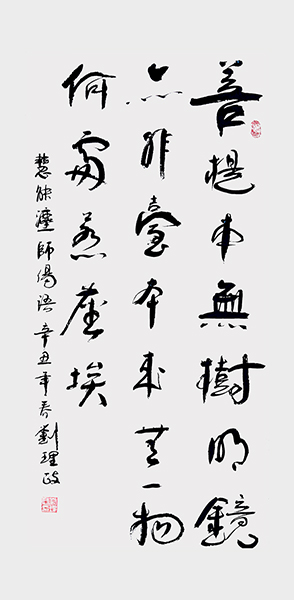 菩提本無樹明鏡
亦非臺本來無一物
何處惹塵埃
慧能禪師偈語辛丑年春劉理政